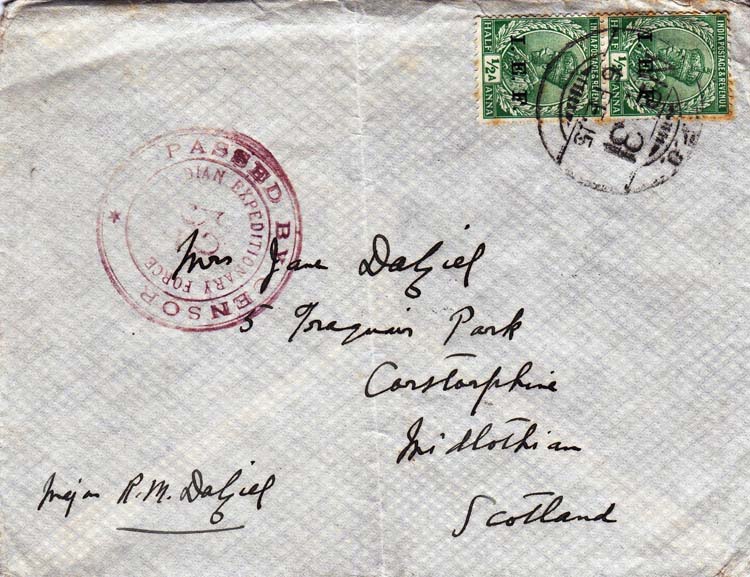 INDIA POSTAGE & REVENUE
I E F
HALF ½A ANNA
INDIA POSTAGE & REVENUE
I E F
HALF ½A ANNA
31
15
PASSED BY CENSOR
INDIAN EXPEDITIONARY FORCE
Mrs Jane Dalziel
5 Traquair Park
Corstorphine
Midlothian
Scotland
Major R.M. Dalziel